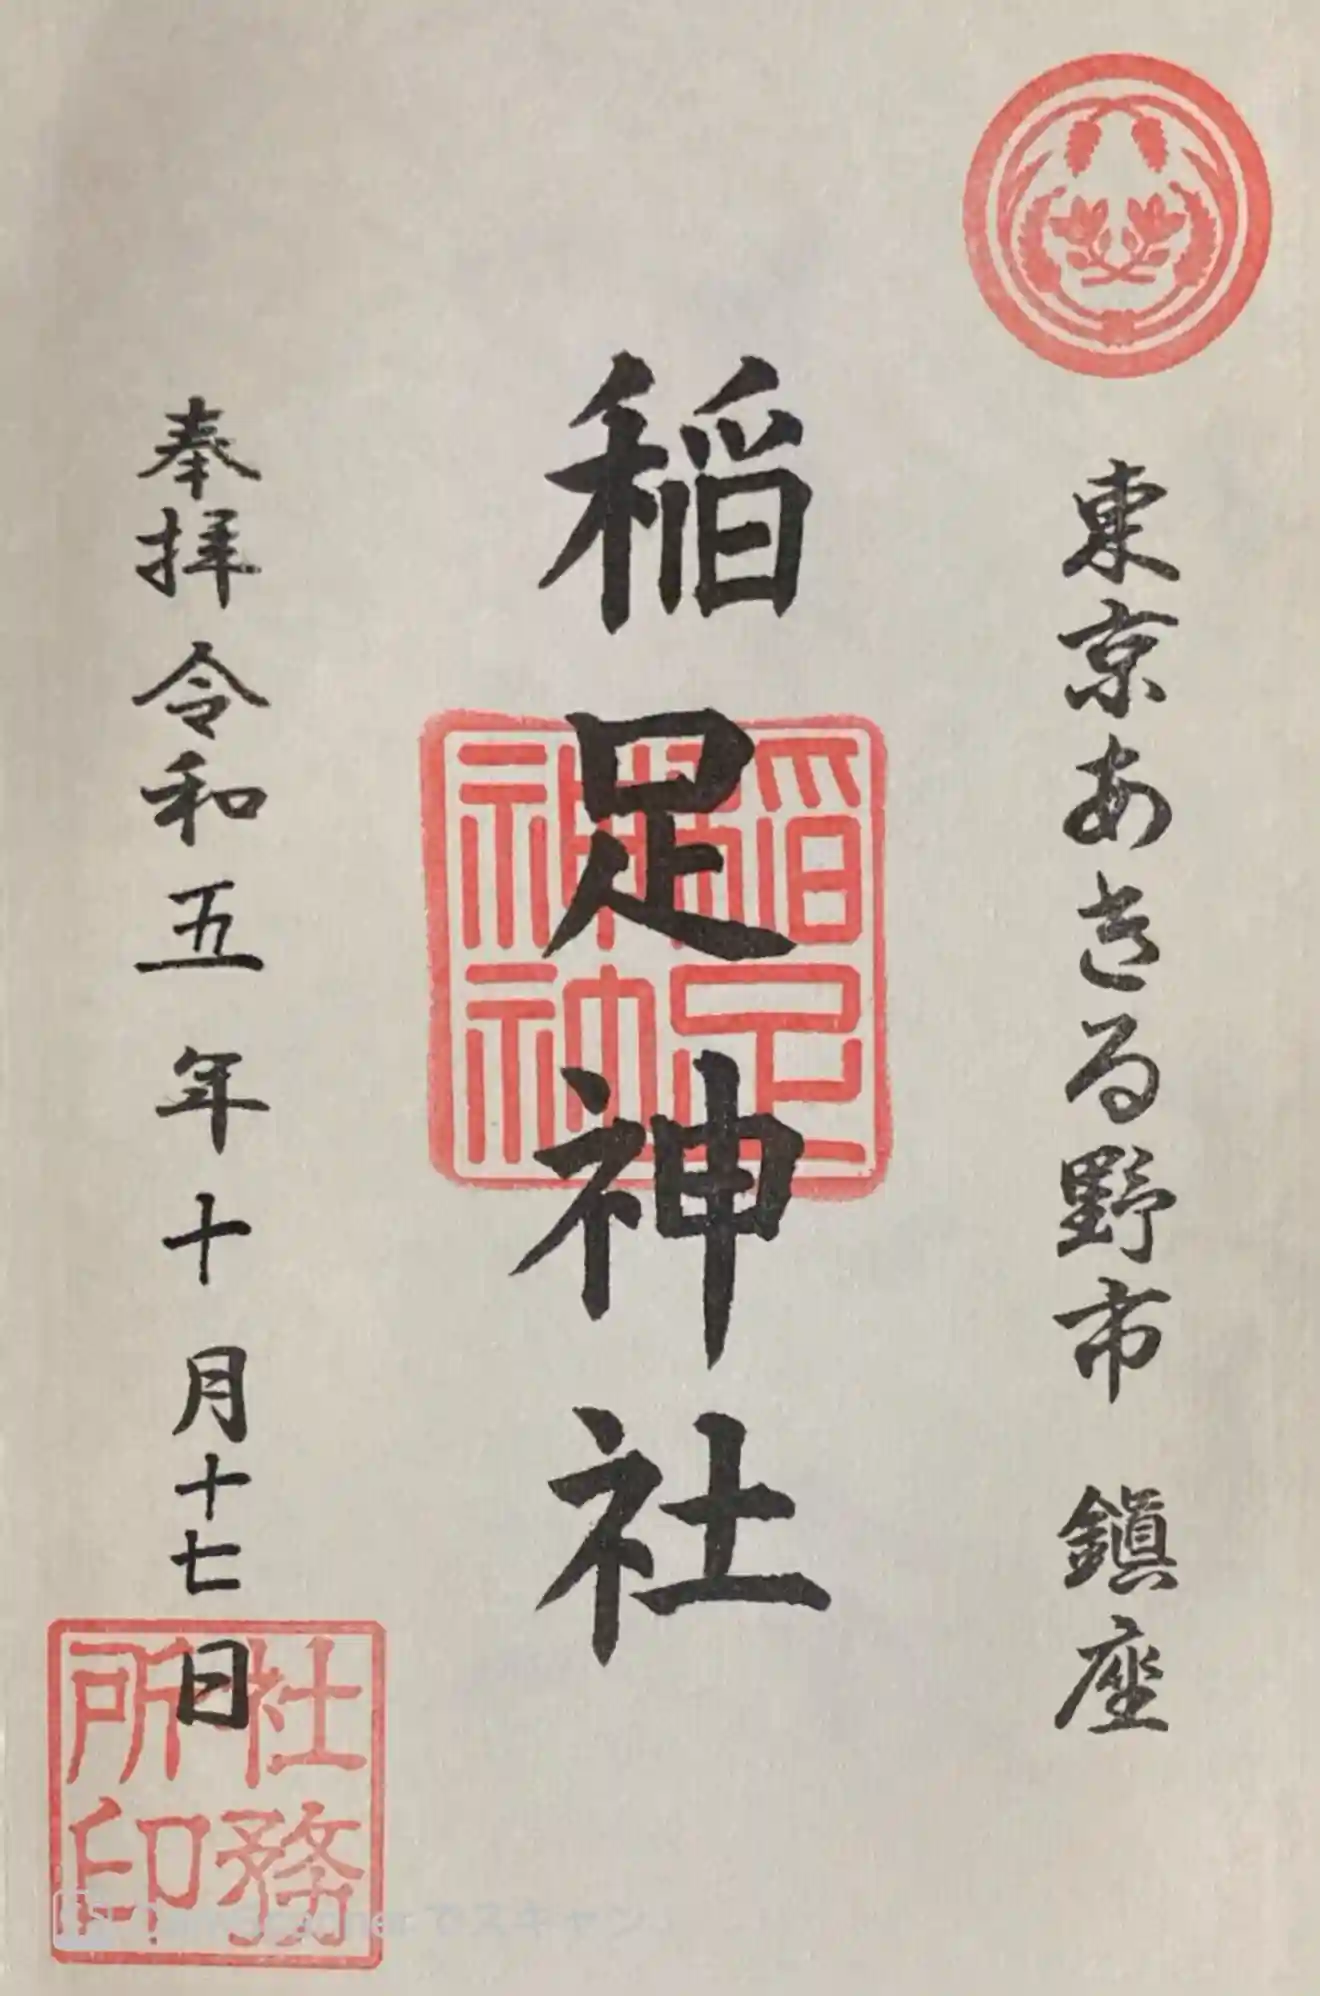 東京あきる野市 鎭座
稲足神社
稲足神社
奉拝 令和五年十月十七日
社務所印
でスキャン